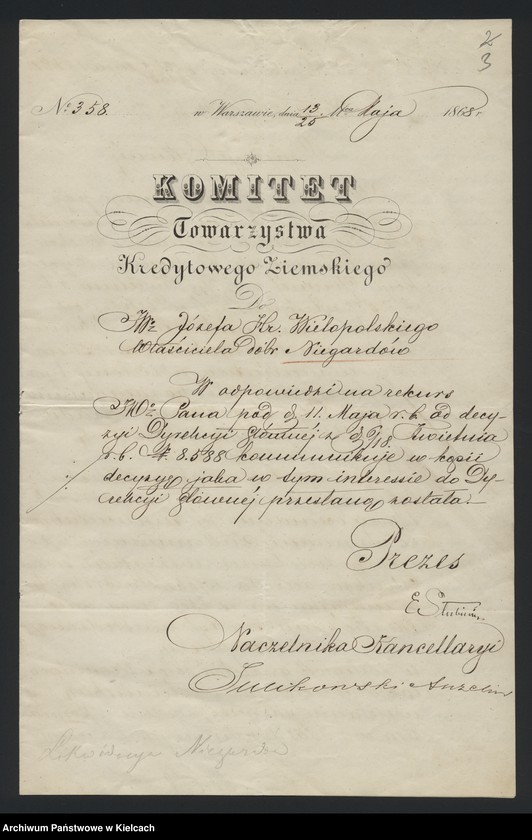 2
3
No 358.
w Warszawie, dnia 13/25 Maja 1868 r.
KOMITET
Towarzystwa
Kredytowego Ziemskiego
Do
JWo Józefa Hr. Wielopolskiego
Właściciela dóbr Niegardów
W odpowiedzi na rekurs
JWo Pana pod d. 11. Maja r. b. od decy-
zyi Dyrekcyi głównej z d. 6/18 Kwietnia
r. b. No 8.538 kommunikuje w kopii
decyzyę jaka w tym interessie do Dy-
rekcyi głównej przesłaną została.
Prezes
Naczelnika Kancellaryi
Sulikowski Anzelm
Niegardów
Archiwum Państwowe w Kielcach